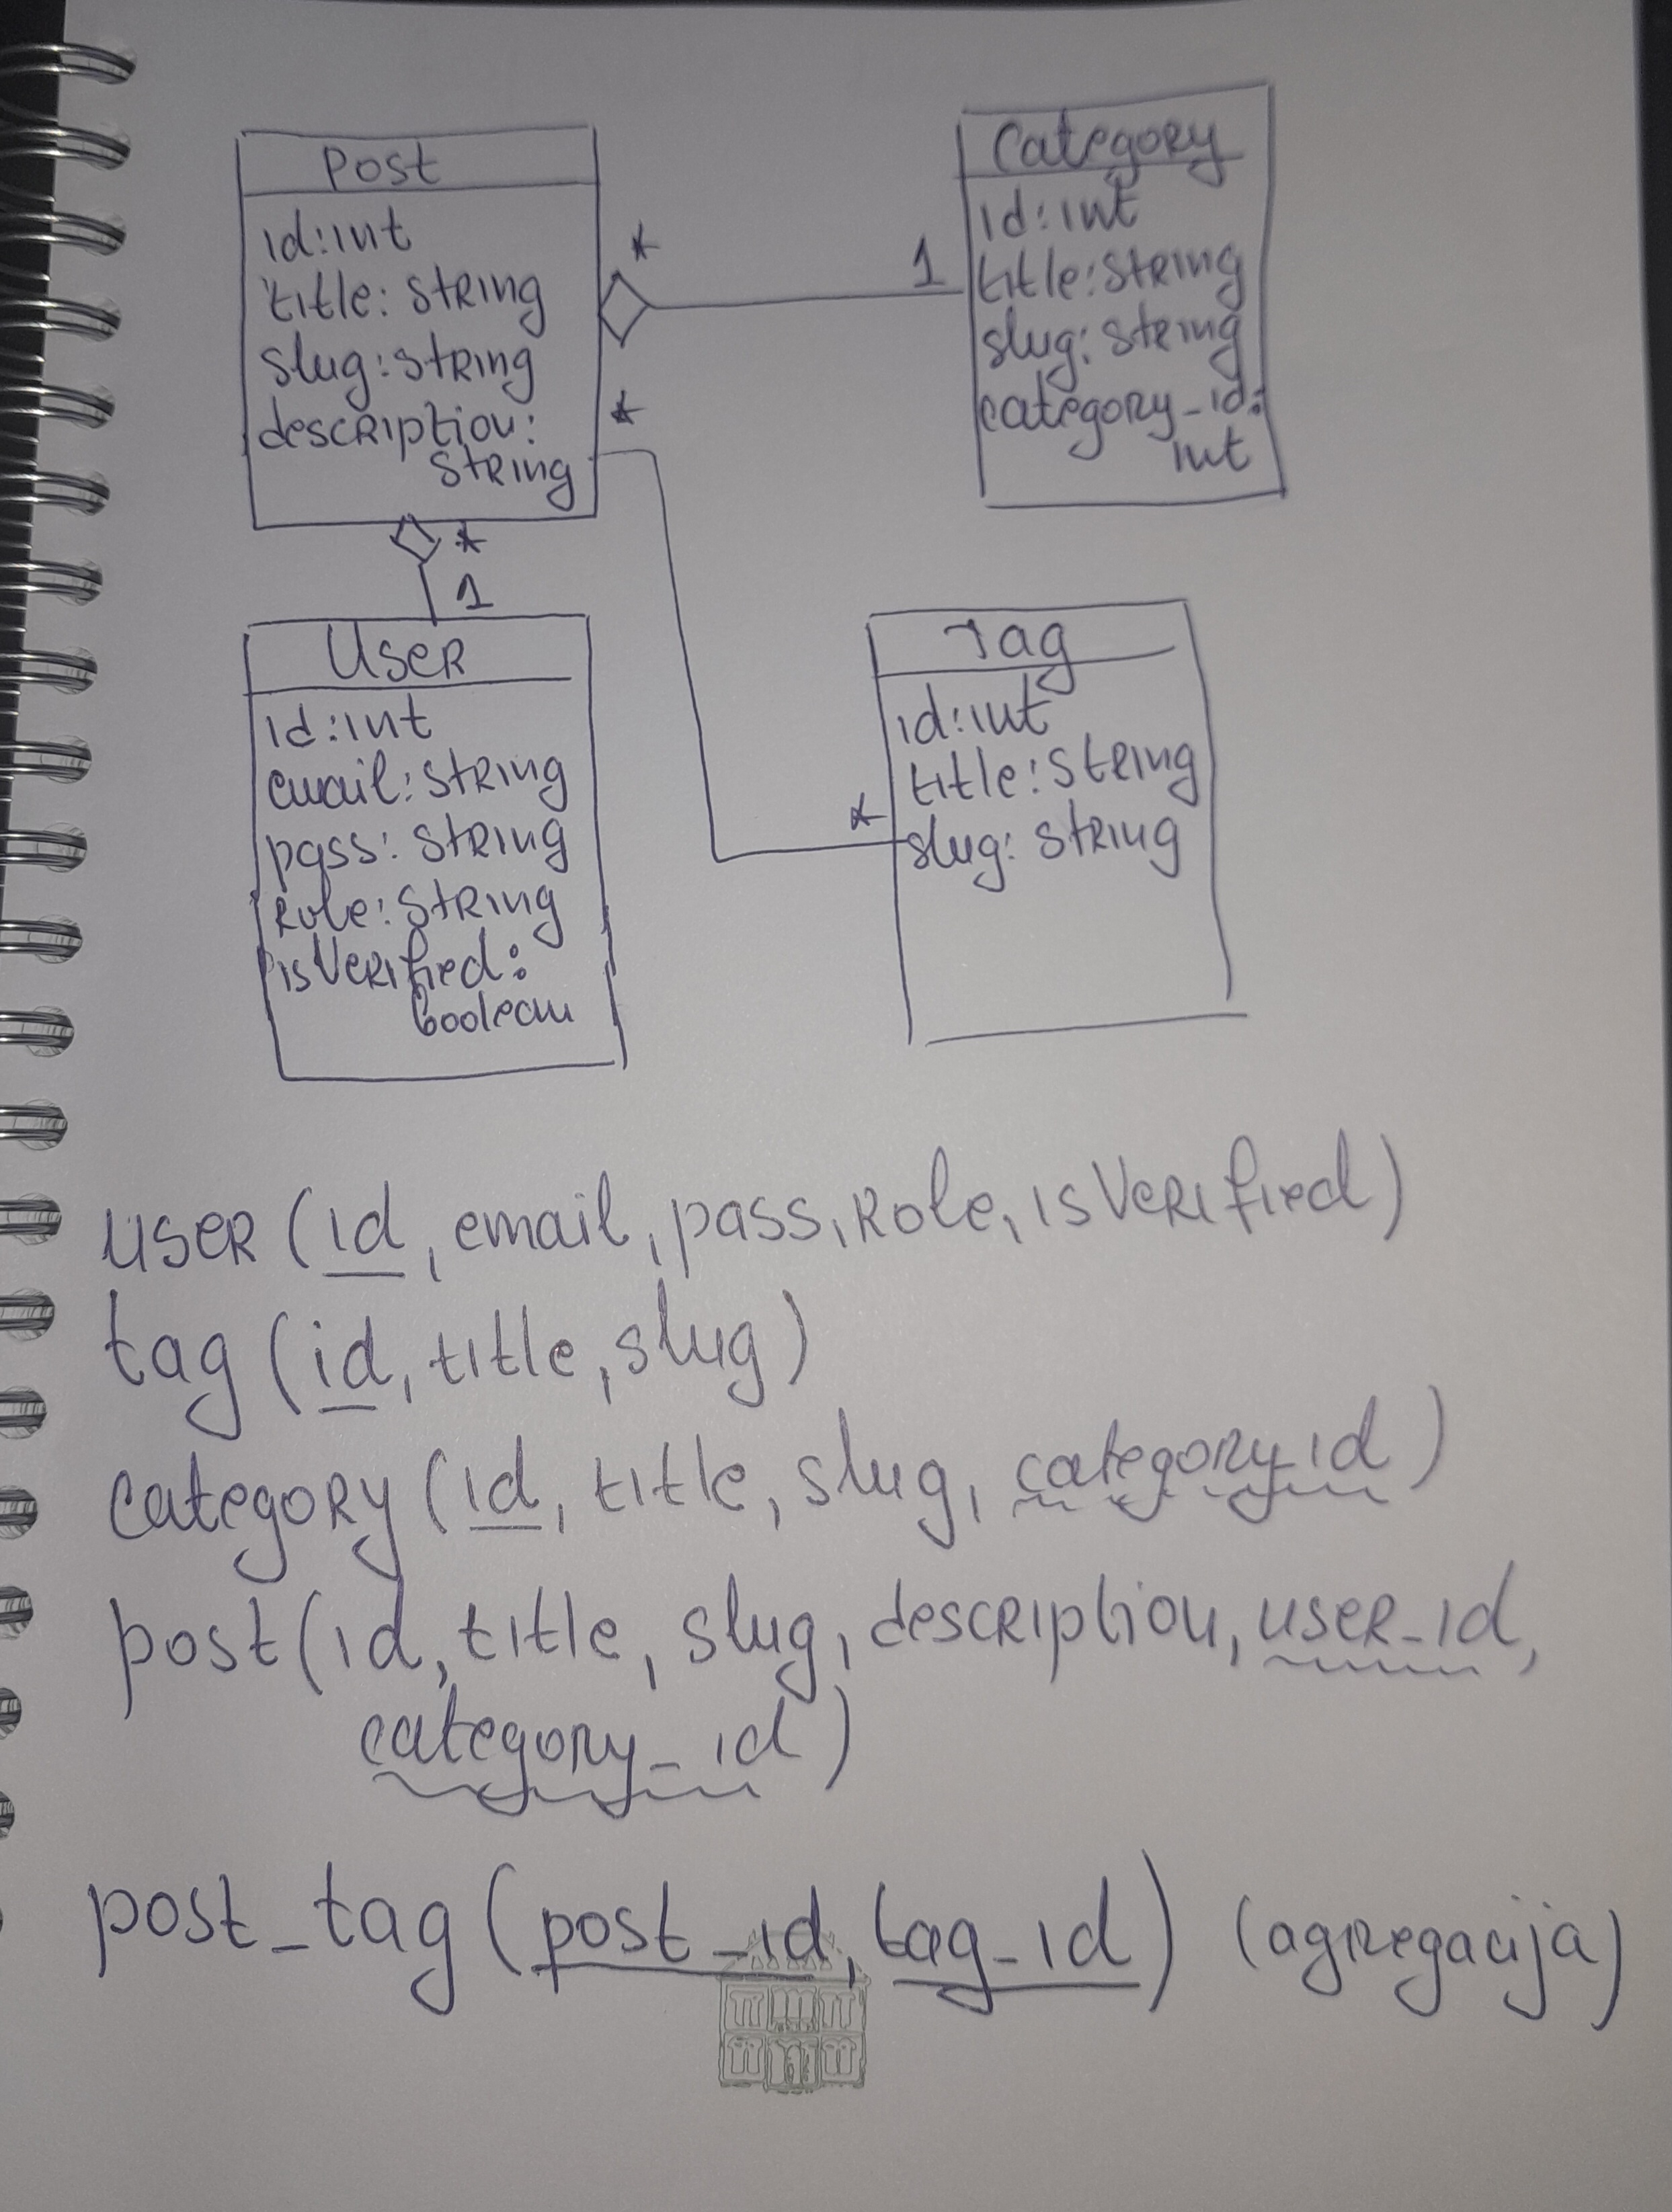 Post
id: int
title: string
slug: string
description:
string
*
1
*
Category
id: int
title: string
slug: string
category_id:
int
*
1
User
id: int
email: string
pass: string
role: string
isVerified:
boolean
Tag
id: int
title: string
slug: string
*
user (id, email, pass, role, isVerified)
tag (id, title, slug)
category (id, title, slug, category_id)
post (id, title, slug, description, user_id,
category_id)
post_tag (post_id, tag_id) (agregacija)